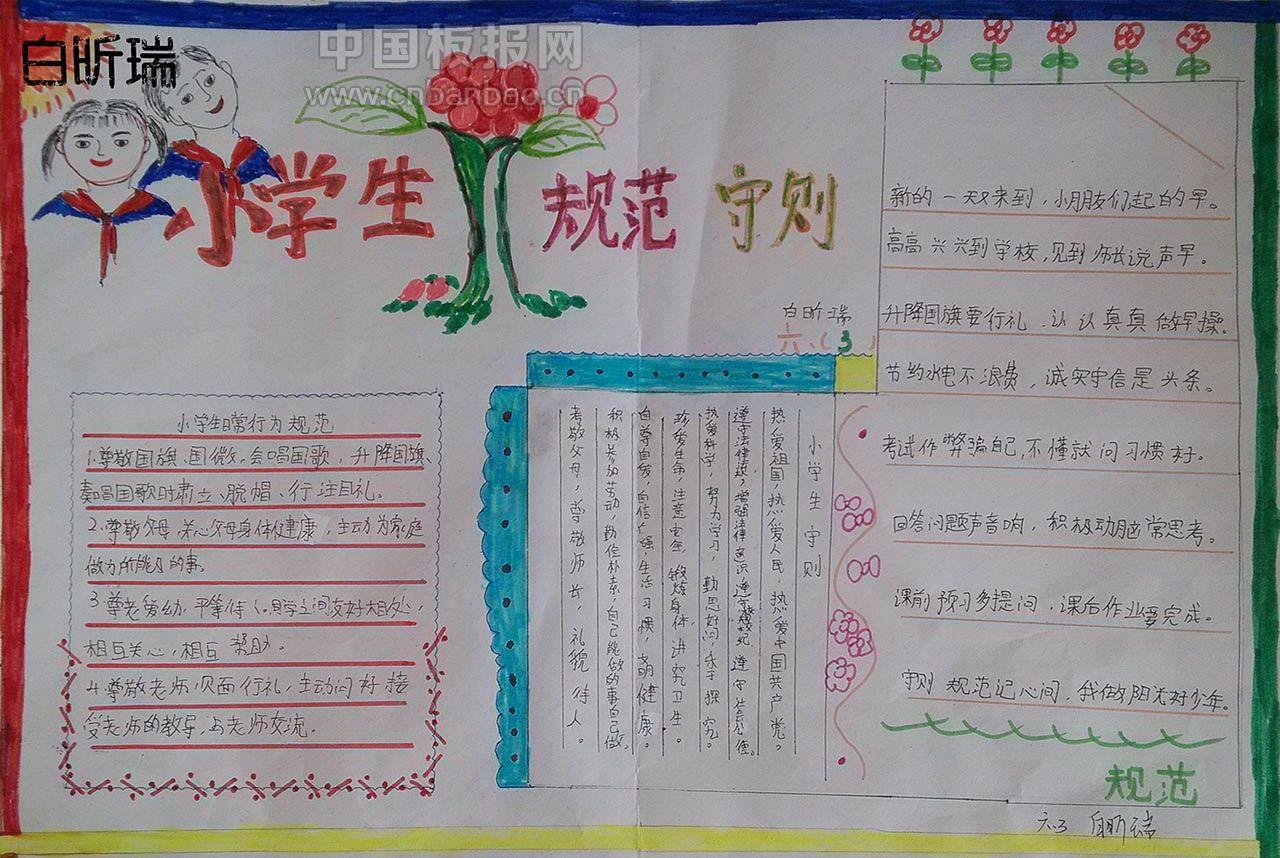 白昕瑞
中国板报网
www.cnbanbao.cn
小学生 规范 守则
白昕瑞
六.(3)
小学生日常行为规范
1.尊敬国旗、国徽,会唱国歌,升降国旗
奏唱国歌时肃立、脱帽、行注目礼。
2.尊敬父母,关心父母身体健康,主动为家庭
做力所能及的事。
3尊老爱幼,平等待人.同学之间友好相处,
相互关心,相互帮助。
4.尊敬老师,见面行礼,主动问好接
受老师的教导,与老师交流。
小学生守则
热爱祖国,热爱人民,热爱中国共产党。
遵守法律法规,增强法律意识.遵守校规校纪,遵守社会公德。
热爱科学,努力学习,勤思好问,乐于探究。
珍爱生命,注意安全,锻炼身体,讲究卫生。
自尊自爱,自信自强,生活习惯,文明健康。
积极参加劳动,勤俭朴素,自己能做的事自己做。
孝敬父母,尊敬师长,礼貌待人。
新的一天又来到,小朋友们起的早。
高高兴兴到学校,见到师长说声早。
升降国旗要行礼,认认真真做早操。
节约水电不浪费,诚实守信是头条。
考试作弊骗自己,不懂就问习惯好。
回答问题声音响,积极动脑常思考。
课前预习多提问,课后作业要完成。
守则规范记心间,我做阳光好少年。
规范
六.3 白昕瑞